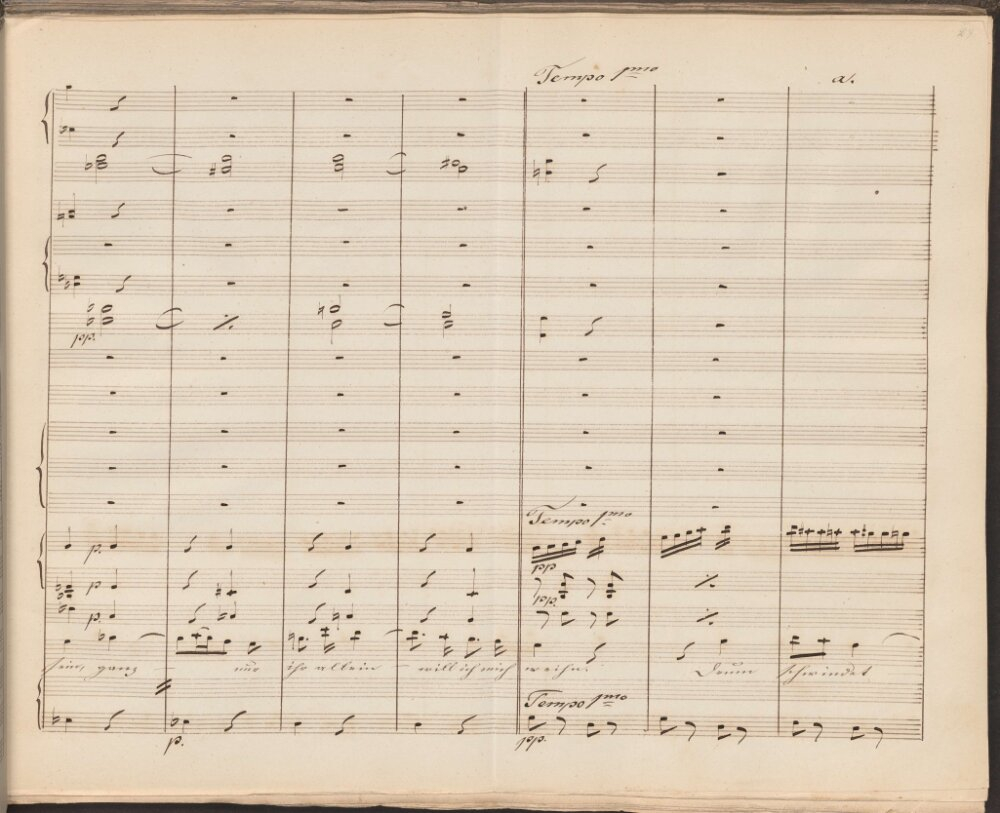 Tempo 1mo
a.
pp.
Tempo 1mo
p.
pp
p
pp.
p.
sein, ganz nur ihr allein will ich mich weihn. Drum schwindet
Tempo 1mo
p.
pp.